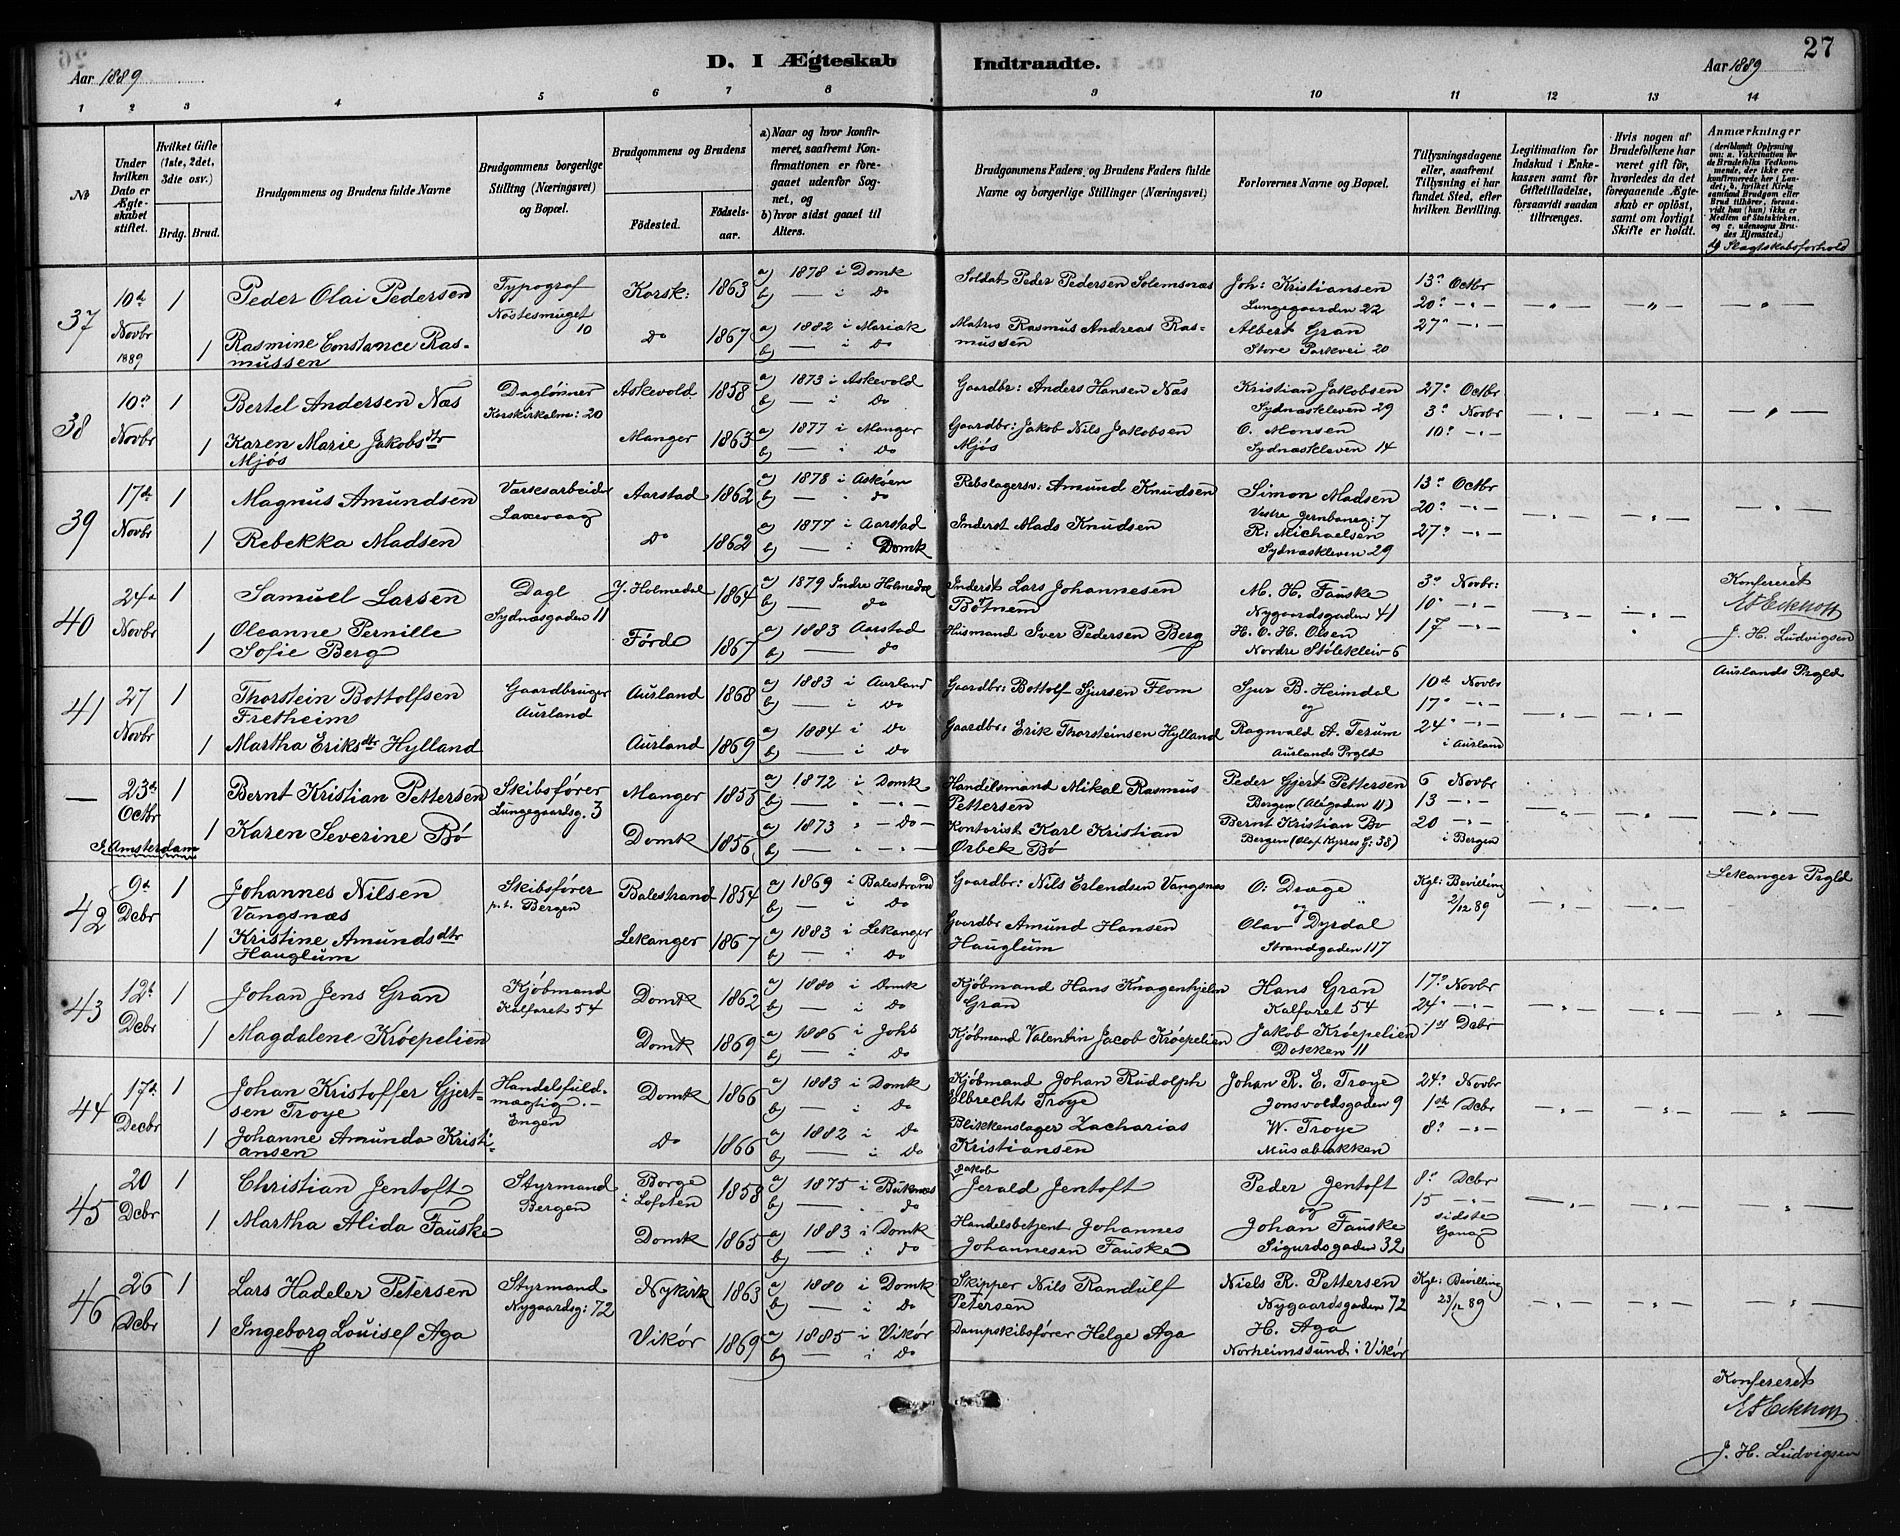 D. I Ægteskab Indtraadte. 27
Aar 1889 Aar 1889
1 2 3 4 5 6 7 8 9 10 11 12 13 14
№
Under hvilken Dato er Ægteskabet stiftet.
Hvilket Gifte (1ste, 2det, 3die osv.)
Brdg. Brud.
Brudgommens og Brudens fulde Navne
Brudgommens borgerlige Stilling (Næringsvei) og Bopæl.
Brudgommens og Brudens
Födested. Födselsaar.
a) Naar og hvor konfirmeret, saafremt Konfirmationen er foregaaet udenfor Sognet, og
b) hvor sidst gaaet til Alters.
Brudgommens Faders og Brudens Faders fulde Navne og borgerlige Stillinger (Næringsvei)
Forlovernes Navne og Bopæl.
Tillysningsdagene eller, saafremt Tillysning ei har fundet Sted, efter hvilken Bevilling.
Legitimation for Indskud i Enkekassen samt for Giftetilladelse, forsaavidt saadan tiltrænges.
Hvis nogen af Brudefolkene har været gift för, hvorledes da det foregaaende Ægteskab er oplöst, samt om lovligt Skifte er holdt.
Anmærkninger
(deriblandt Oplysning om: a. Vakcination for de Brudefolks Vedkommende, der ikke ere konfirmerede her i Landet; b. hvilket Kirkesamfund Brudgom eller Brud tilhörer, forsaavidt han (hun) ikke er Medlem af Statskirken, og c. udensogns Brudes Hjemsted.)
d) Slagtskabsforhold
37
10de Novbr 1889
1 Peder Olai Pedersen
Typograf
Nøstesmuget 10
Korsk: 1863
a) 1878 i Domk
b) — i Do
Soldat Peder Pedersen Solemsnæs
Joh: Kristiansen
Lungegaarden 22
13de Octbr
20 -"-
27 -"-
1 Rasmine Constance Rasmussen
Do 1867
a) 1882 i Mariak
b) — i Do
Matros Rasmus Andreas Rasmussen
Albert Gran
Store Parkvei 20
38
10de Novbr
1 Bertel Andersen Næs
Daglønner
Korskirkealm: 20
Askevold 1858
a) 1873 i Askevold
b) — i Do
Gaardbr: Anders Hansen Næs
Kristian Jakobsen
Sydnæskleven 29
27 Octbr
3 Novbr
10 -"-
1 Karen Marie Jakobsdtr Mjøs
Manger 1863
a) 1877 i Manger
b) — i Do
Gaardbr: Jakob Nils Jakobsen Mjøs
O. Monsen
Sydnæskleven 14
39
17de Novbr
1 Magnus Amundsen
Værksarbeider
Laxevaag
Aarstad 1862
a) 1878 i Askøen
b) — " do
Rebslagersv: Amund Knudsen
Simon Madsen
Vestre Jernbaneg: 7
13 Octbr
20 -"-
27 -"-
1 Rebekka Madsen
Do 1862
a) 1877 i Aarstad
b) — i Domk
Inderst Mads Knudsen
R: Michaelsen
Sydnæskleven 29
40
24de Novbr
1 Samuel Larsen
Dagl
Sydnæsgaden 11
Y. Holmedal 1864
a) 1879 Indre Holmedal
b) — do
Inderst Lars Johannesen Bøtnem
M. H. Fauske
Nygaardsgaden 41
3 Novbr:
10 -"-
17 -"-
Konfereret
E Eckhoff
J. H. Ludvigsen
1 Oleanne Pernille Sofie Berg
Førde 1867
a) 1883 Aarstad
b) — do
Husmand Iver Pedersen Berg
H. O. H. Olsen
Nordre Stølekleiv 6
41
27 Novbr
1 Thorstein Bottolfsen Fretheim
Gaardbruger
Aurland
Aurland 1868
a) 1883 i Aurland
b) — i Do
Gaardbr: Bottolf Sjursen Flom
Sjur B. Heimdal
og
10de Novbr
17 -"-
24 -"-
i Aurland
Aurlands Prgld
1 Martha Eriksdtr Hylland
Aurland 1869
a) 1884 i Do
b) — i Do
Gaardbr: Erik Thorsteinsen Hylland
Ragnvald A. Terum
Aurlands Prgld
—
23de Octbr
I Amsterdam
1 Bernt Kristian Pettersen
Skibsfører
Lungegaardsg. 3
Manger 1855
a) 1872 i Domk
b) — " -"-
Handelsmand Mikal Rasmus Pettersen
Peder Gjert Pettersen
Bergen (Allégaden 11)
6 Novbr
13 -"-
20 -"-
i Bergen
1 Karen Severine Bø
Domk 1856
a) 1873 " - Do -
b) — " -"-
Kontorist Karl Kristian Ørbek Bø
Bernt Kristian Bø
Bergen (Olaf Kyrres G: 38)
42
9de Dcbr
1 Johannes Nilsen Vangsnæs
Skibsfører
p.t. Bergen
Balestrand 1854
a) 1869 i Balestrand
b) — i Do
Gaardbr: Nils Erlendsen Vangsnæs
O: Drage
og
Kgl: Bevilling
2/12 89
Lekanger Prgld
1 Kristine Amundsdtr Hauglum
Lekanger 1867
a) 1883 i Lekanger
b) — i Do
Gaardbr Amund Hansen Hauglum
Olav Dyrdal
Strandgaden 117
43
12te Dcbr
1 Johan Jens Gran
Kjøbmand
Kalfaret 54
Domk 1862
a) 1880 i Domk
b) — i Do
Kjøbmand Hans Knagenhjelm Gran
Hans Gran
Kalfaret 54
17 Novbr
24 -"-
1st Dcbr
1 Magdalene Krøepelien
Domk 1869
a) 1886 i Johs
b) — i Do
Kjøbmand Valentin Jacob Krøepelien
Jakob Krøepelien
Dokken 11
44
17de Decbr
1 Johan Kristoffer Gjertsen Troye
Handelsfuldmægtig
Engen
Domk 1866
a) 1883 i Domk
b) — i Do
Kjøbmand Johan Rudolph Elbrecht Troye
Johan R. E. Troye
Jonsvoldsgaden 9
24 Novbr
1ste Dcbr
8 -"-
1 Johanne Amunda Kristiansen
Do 1866
a) 1882 i Do
b) — i Do
Blikkenslager Zacharias Kristiansen
W. Troye
Musæbakken
45
20 Dcbr
1 Christian Jentoft
Styrmand
Bergen
Borge i Lofoten 1858
a) 1875 i Buksnæs
b) — " do
Jakob Jerald Jentoft
Peder Jentoft
og
8 Dcbr
15 -"-
sidste Gang
1 Martha Alida Fauske
Domk 1865
a) 1883 i Domk
b) — i do
Handelsbetjent Johannes Johannesen Fauske
Johan Fauske
Sigurdsgaden 32
46
26 Dcbr
1 Lars Hadeler Petersen
Styrmand
Nygaardsg: 72
Nykirk 1863
a) 1880 i Domk
b) — i Do
Skipper Nils Randulf Petersen
Niels R. Pettersen
Nygaardsgaden 72
Kgl: Bevilling
23/12 89
1 Ingeborg Louise Aga
Vikør 1869
a) 1885 i Vikør
b) — i Do
Dampskibsfører Helge Aga
H. Aga
Norheimssund i Vikør
Konfereret
E Eckhoff
J. H. Ludvigsen